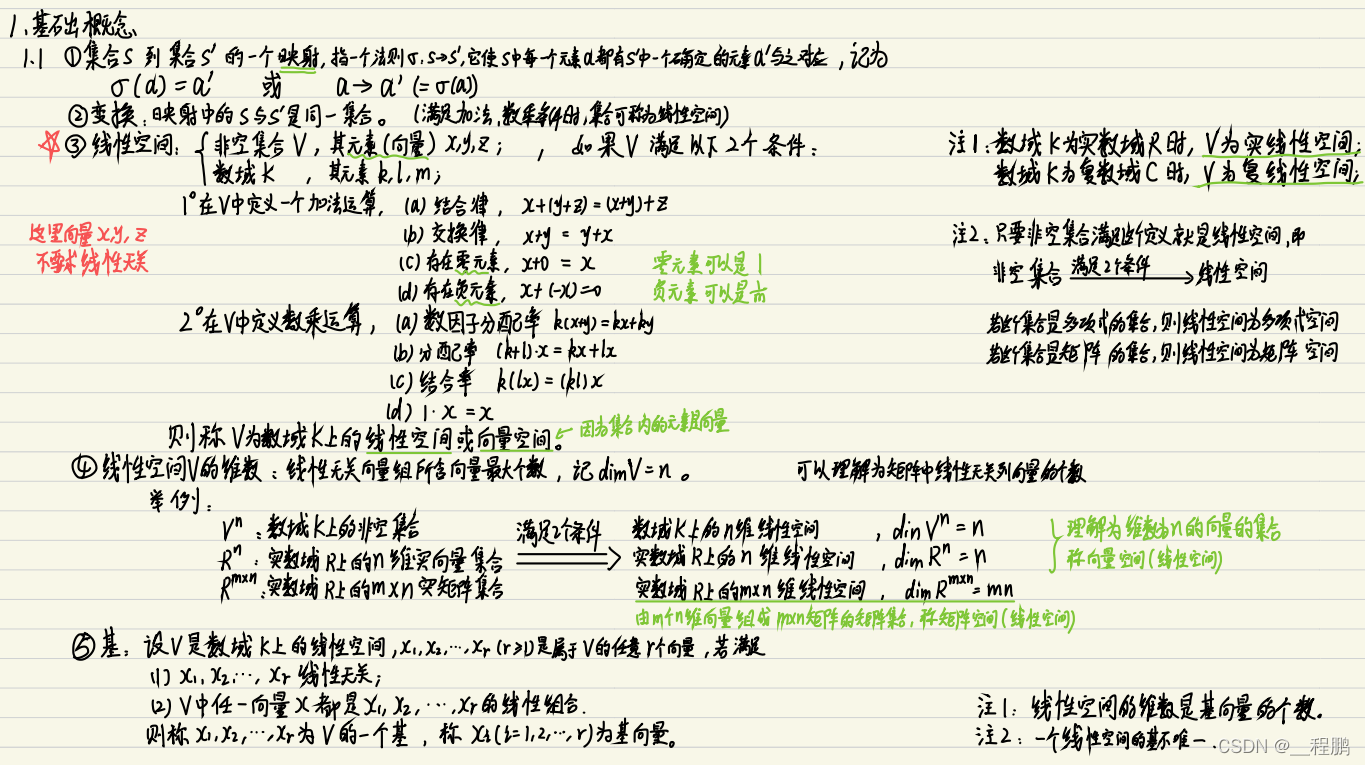 1.基础概念
1.1 ①集合S 到 集合S' 的一个映射,指一个法则σ:S→S',它使S中每一个元素a都有S'中一个确定的元素a'与之对应,记为
σ(a)=a' 或 a→a'(=σ(a))
②变换:映射中的S与S'是同一集合。(满足加法,数乘条件时,集合可称为线性空间)
☆③线性空间:{非空集合V,其元素(向量)x,y,z; , 如果V满足以下2个条件:
数域K ,其元素k,l,m;
注1:数域K为实数域R时,V为实线性空间;
数域K为复数域C时,V为复线性空间;
1°在V中定义一个加法运算,(a)结合律,x+(y+z)=(x+y)+z
这里向量x,y,z
不要求线性无关
(b)交换律,x+y=y+x
(c)存在零元素,x+0=x
零元素可以是1
(d)存在负元素,x+(-x)=0
负元素可以是
注2:只要非空集合满足这个定义就是线性空间,即
非空集合 满足2个条件→线性空间
2°在V中定义数乘运算,(a)数因子分配率 k(x+y)=kx+ky
(b)分配率 (k+l)·x=kx+lx
(c)结合率 k(lx)=(kl)x
(d)1·x=x
若这个集合是多项式的集合,则线性空间为多项式空间
若这个集合是矩阵的集合,则线性空间为矩阵空间
则称V为数域K上的线性空间或向量空间。←因为集合内的元素是向量
④线性空间V的维数:线性无关向量组所含向量最大个数,记dimV=n。 可以理解为矩阵中线性无关列向量的个数
举例:
Vⁿ:数域K上的非空集合 满足2个条件 数域K上的n维线性空间 ,dimVⁿ=n
Rⁿ:实数域R上的n维实向量集合 ⇒ 实数域R上的n维线性空间 ,dimRⁿ=n
R^{m×n}:实数域R上的m×n实矩阵集合 实数域R上的m×n维线性空间,dimR^{m×n}=mn
{理解为维数为n的向量的集合
称向量空间(线性空间)
由m个n维向量组成m×n矩阵的矩阵集合,称矩阵空间(线性空间)
⑤基:设V是数域K上的线性空间,x₁,x₂,…,xᵣ(r≥1)是属于V的任意r个向量,若满足
(1)x₁,x₂,…,xᵣ线性无关;
(2)V中任一向量x都是x₁,x₂,…,xᵣ的线性组合.
则称x₁,x₂,…,xᵣ为V的一个基,称xᵢ(i=1,2,…,r)为基向量。
注1:线性空间的维数是基向量的个数。
注2:一个线性空间的基不唯一.
CSDN @__程鹏